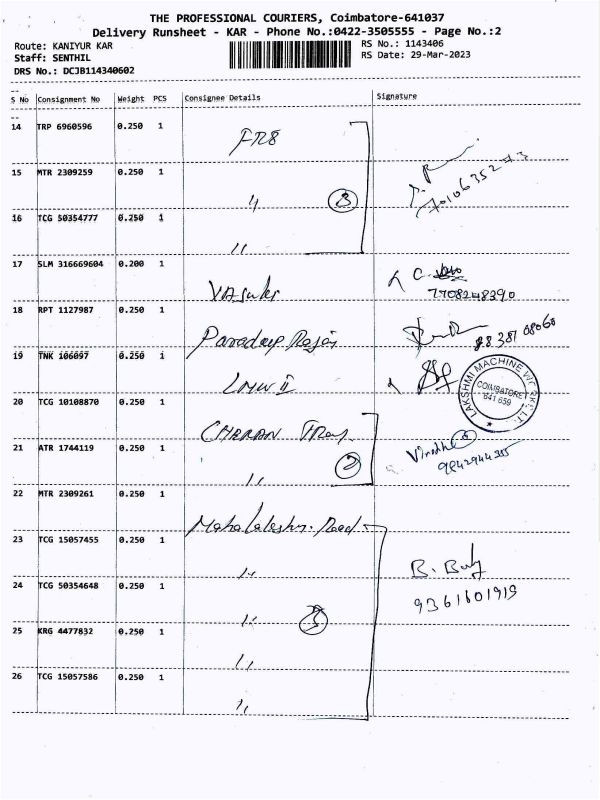 THE PROFESSIONAL COURIERS, Coimbatore-641037
Delivery Runsheet - KAR - Phone No.:0422-3505555 - Page No.:2
Route: KANIYUR KAR
RS No.: 1143406
Staff: SENTHIL
RS Date: 29-Mar-2023
DRS No.: DCJB114340602
S No Consignment No Weight PCS Consignee Details Signature
14 TRP 6960596 0.250 1
15 MTR 2309259 0.250 1 〃 3
16 TCG 50354777 0.250 1 〃
17 SLM 316669604 0.200 1
7708248390
18 RPT 1127987 0.250 1
19 TNK 106097 0.250 1 LMW II
LAKSHMI MACHINE WORKS LT.
COIMBATORE
641 659
20 TCG 10108870 0.250 1 CHERAN
21 ATR 1744119 0.250 1 〃 2
22 MTR 2309261 0.250 1 Road
23 TCG 15057455 0.250 1 〃
24 TCG 50354648 0.250 1 〃 5
B.
9361601919
25 KRG 4477832 0.250 1 〃
26 TCG 15057586 0.250 1 〃